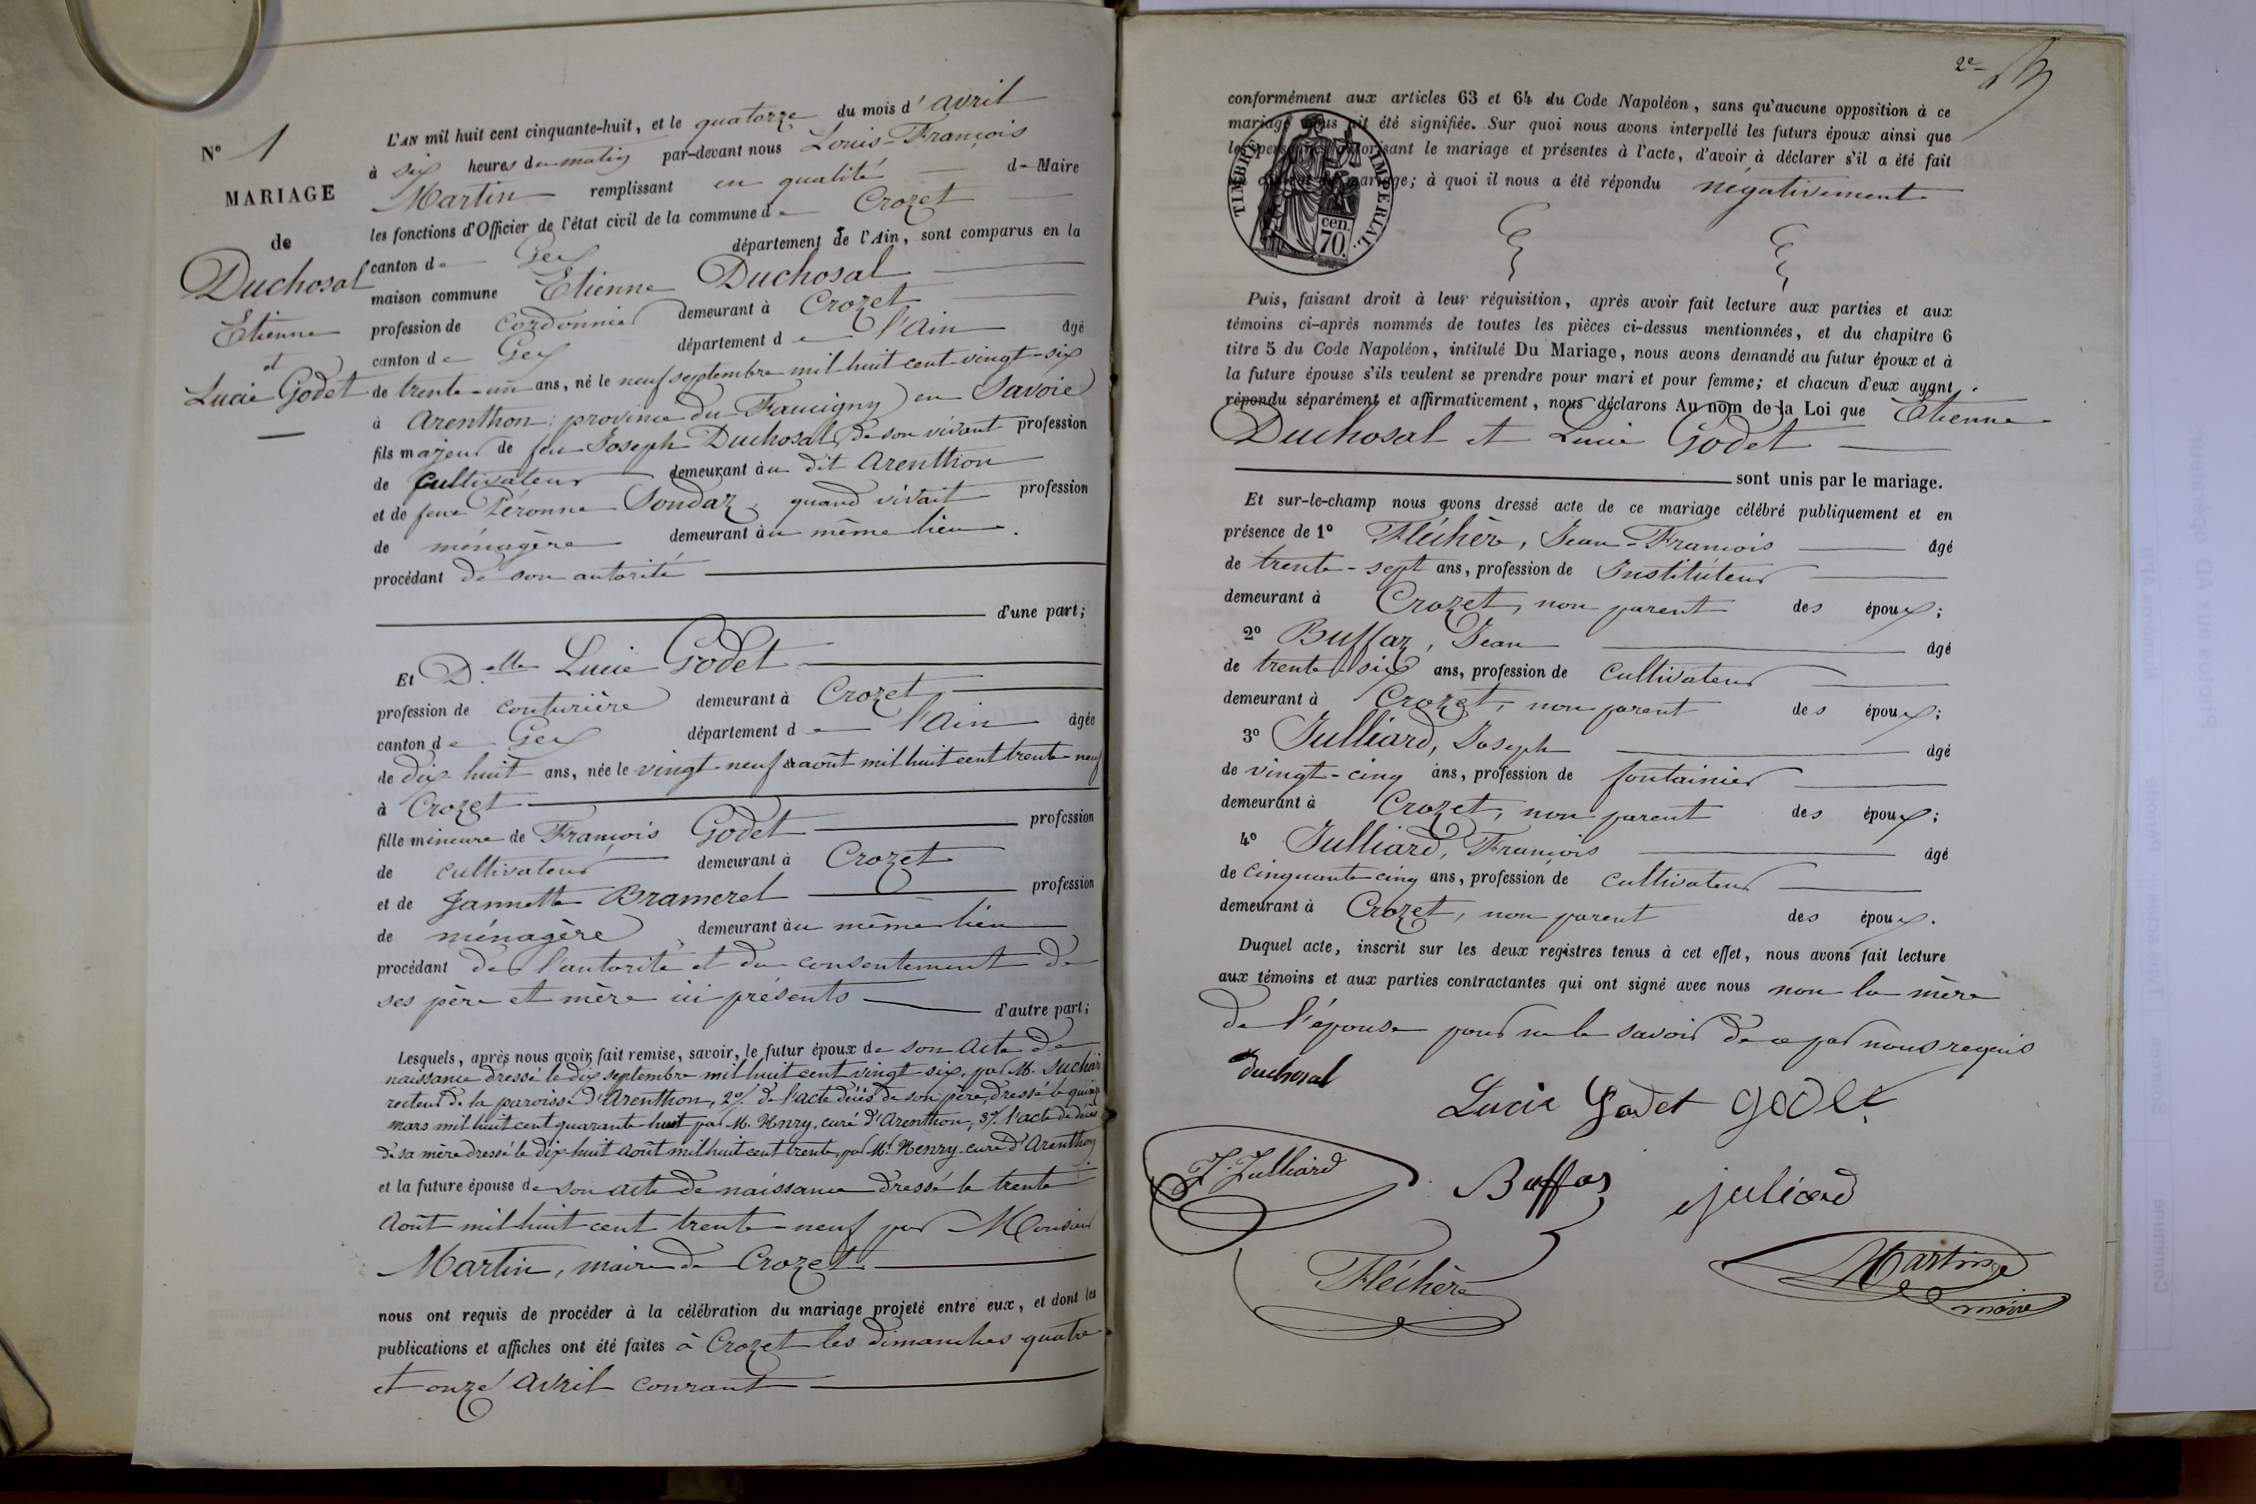 N° 1
MARIAGE
de
Duchosal
Etienne
et
Lucie Godet
L'AN mil huit cent cinquante-huit, et le quatorze du mois d'avril
à six heures du matin par-devant nous Louis-François
Martin remplissant en qualité de Maire
les fonctions d'Officier de l'état civil de la commune de Crozet
canton de Gex département de l'Ain, sont comparus en la
maison commune Etienne Duchosal
profession de cordonnier demeurant à Crozet
canton de Gex département de l'Ain âgé
de trente-un ans, né le neuf septembre mil huit cent vingt-six
à Arenthon, province du Faucigny en Savoie
fils majeur de feu Joseph Duchosal, de son vivant profession
de cultivateur demeurant au dit Arenthon
et de feue Péronne Soudaz, quand vivait profession
de ménagère demeurant au même lieu.
procédant de son autorité
d'une part;
Et D.elle Lucie Godet
profession de couturière demeurant à Crozet
canton de Gex département de l'Ain âgée
de dix-huit ans, née le vingt-neuf août mil huit cent trente-neuf
à Crozet
fille mineure de François Godet profession
de cultivateur demeurant à Crozet
et de Jannette Brameret profession
de ménagère demeurant au même lieu
procédant de l'autorité et du consentement de
ses père et mère ici présents
d'autre part;
Lesquels, après nous avoir fait remise, savoir, le futur époux de son acte de
naissance dressé le dix septembre mil huit cent vingt-six, par M. Suchai
recteur de la paroisse d'Arenthon, 2° de l'acte décès de son père, dressé le quinze
mars mil huit cent quarante-huit par M. Henry, curé d'Arenthon, 3° l'acte de décès
de sa mère dressé le dix-huit août mil huit cent trente, par M. Henry curé d'Arenthon
et la future épouse de son acte de naissance dressé le trente
août mil huit cent trente-neuf par Monsieur
Martin, maire de Crozet.
nous ont requis de procéder à la célébration du mariage projeté entre eux, et dont les
publications et affiches ont été faites à Crozet les dimanches quatre
et onze avril courant
2e
conformément aux articles 63 et 64 du Code Napoléon, sans qu'aucune opposition à ce
mariage nous ait été signifiée. Sur quoi nous avons interpellé les futurs époux ainsi que
les personnes autorisant le mariage et présentes à l'acte, d'avoir à déclarer s'il a été fait
contrat de mariage; à quoi il nous a été répondu négativement
TIMBRE IMPERIAL.
cen.
70.
Puis, faisant droit à leur réquisition, après avoir fait lecture aux parties et aux
témoins ci-après nommés de toutes les pièces ci-dessus mentionnées, et du chapitre 6
titre 5 du Code Napoléon, intitulé Du Mariage, nous avons demandé au futur époux et à
la future épouse s'ils veulent se prendre pour mari et pour femme; et chacun d'eux ayant
répondu séparément et affirmativement, nous déclarons Au nom de la Loi que Etienne
Duchosal et Lucie Godet
sont unis par le mariage.
Et sur-le-champ nous avons dressé acte de ce mariage célébré publiquement et en
présence de 1° Fléchère, Jean-François âgé
de trente-sept ans, profession de Instituteur
demeurant à Crozet, non parent des époux;
2° Buffaz, Jean âgé
de trente-six ans, profession de cultivateur
demeurant à Crozet, non parent des époux;
3° Julliard, Joseph âgé
de vingt-cinq ans, profession de fontainier
demeurant à Crozet, non parent des époux;
4° Julliard, François âgé
de cinquante-cinq ans, profession de cultivateur
demeurant à Crozet, non parent des époux.
Duquel acte, inscrit sur les deux registres tenus à cet effet, nous avons fait lecture
aux témoins et aux parties contractantes qui ont signé avec nous non la mère
de l'épouse pour ne le savoir de ce par nous requis
duchosal
Lucie Godet Godet
J. Julliard Buffaz juliard
Fléchère Martin
maire